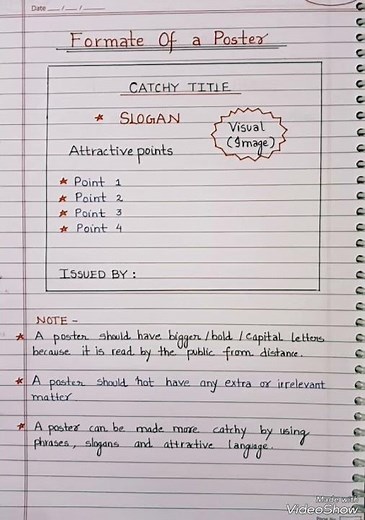 Date __/__/____
Formate Of a Poster
CATCHY TITLE
★ SLOGAN
Visual
(Image)
Attractive points
★ Point 1
★ Point 2
★ Point 3
★ Point 4
ISSUED BY :
NOTE -
★ A poster should have bigger/bold/capital letters
because it is read by the public from distance.
★ A poster should not have any extra or irrelevant
matter
★ A poster can be made more catchy by using
phrases, slogans and attractive language.
Made with
VideoShow